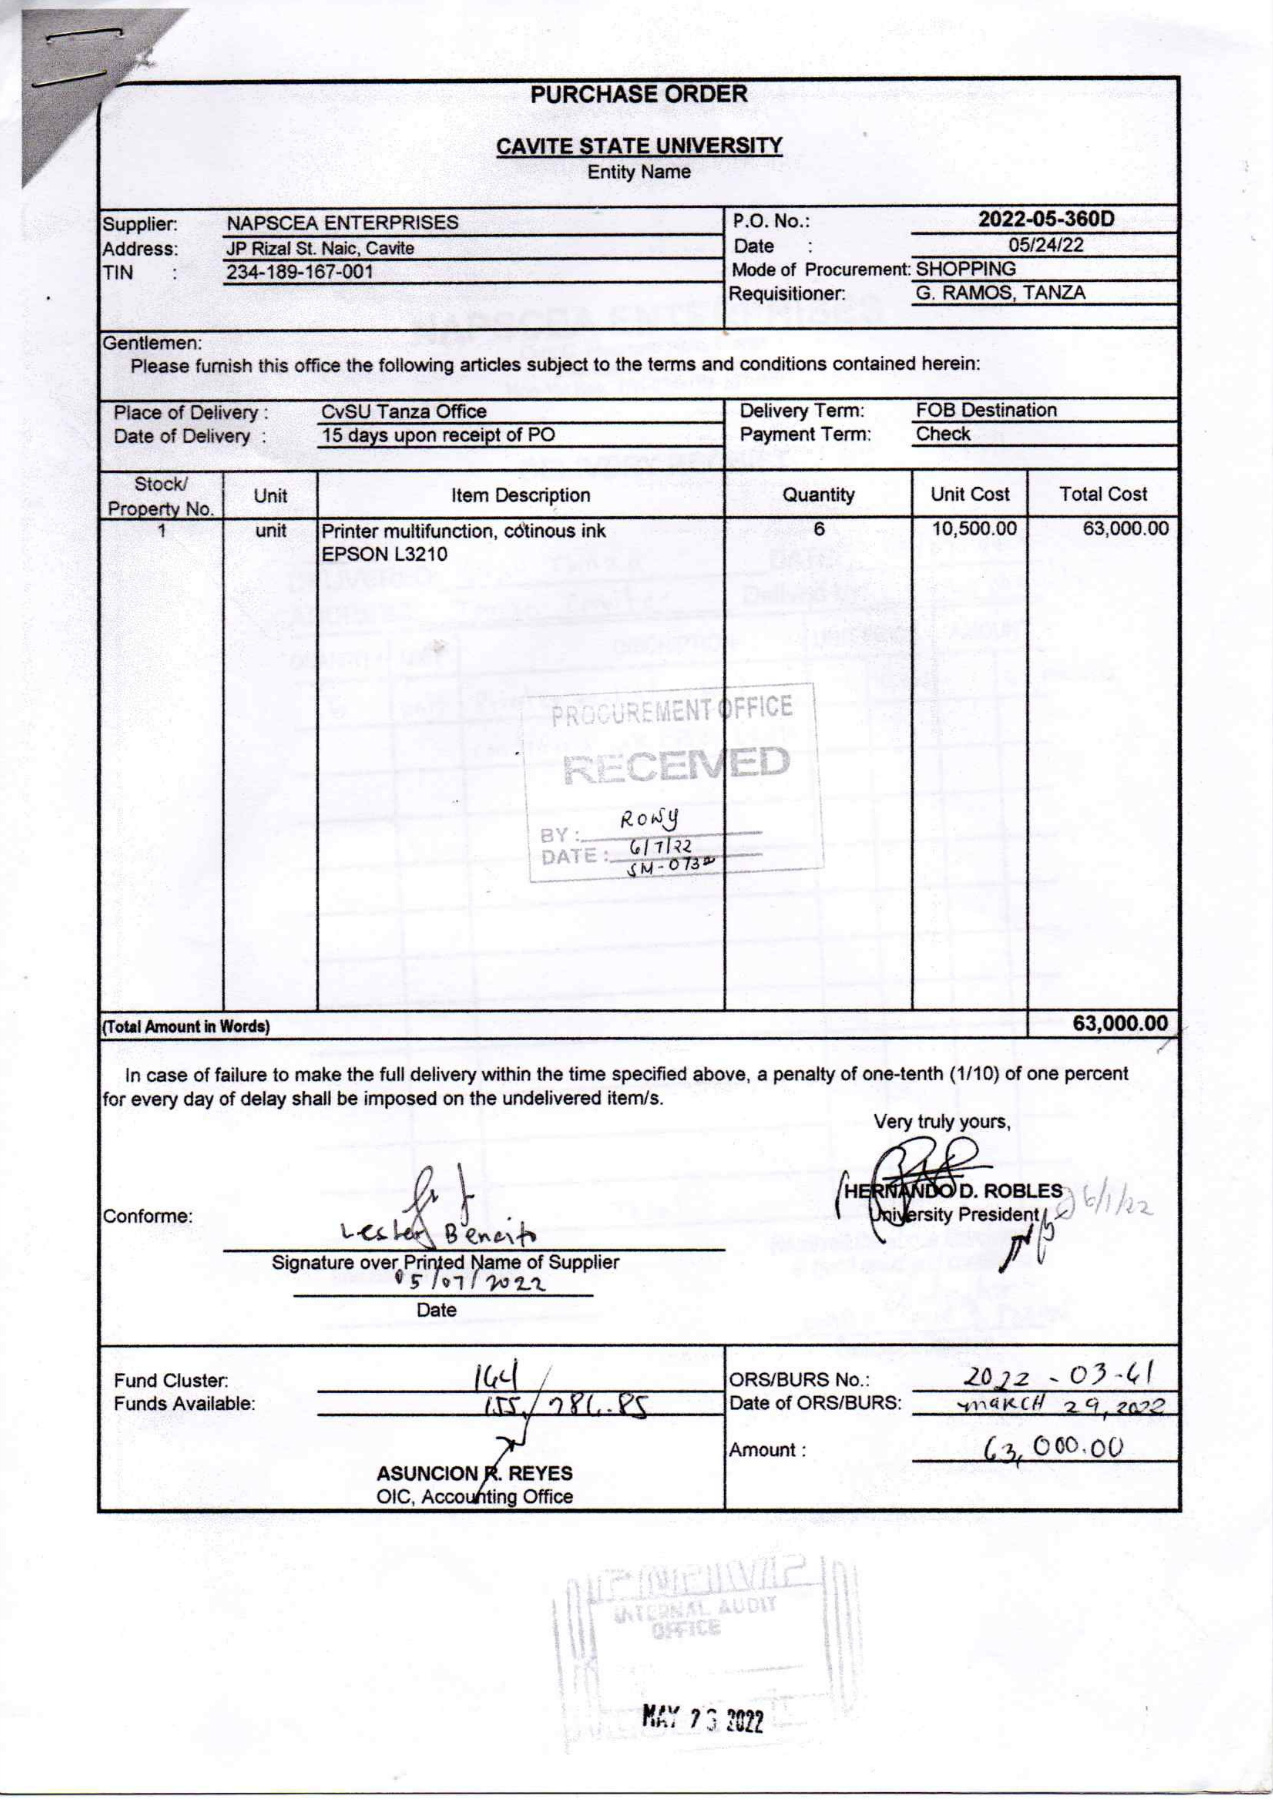 PURCHASE ORDER
CAVITE STATE UNIVERSITY
Entity Name
Supplier: NAPSCEA ENTERPRISES
Address: JP Rizal St. Naic, Cavite
TIN : 234-189-167-001
P.O. No.: 2022-05-360D
Date : 05/24/22
Mode of Procurement: SHOPPING
Requisitioner: G. RAMOS, TANZA
Gentlemen:
Please furnish this office the following articles subject to the terms and conditions contained herein:
Place of Delivery : CvSU Tanza Office
Date of Delivery : 15 days upon receipt of PO
Delivery Term: FOB Destination
Payment Term: Check
Stock/ Property No. Unit Item Description Quantity Unit Cost Total Cost
1 unit Printer multifunction, cotinous ink 6 10,500.00 63,000.00
EPSON L3210
PROCUREMENT OFFICE
RECEIVED
BY :
DATE : 6/7/22
(Total Amount in Words) 63,000.00
In case of failure to make the full delivery within the time specified above, a penalty of one-tenth (1/10) of one percent
for every day of delay shall be imposed on the undelivered item/s.
Very truly yours,
HERNANDO D. ROBLES
University President
Conforme:
Signature over Printed Name of Supplier
05/07/2022
Date
Fund Cluster: 164
Funds Available:
ASUNCION R. REYES
OIC, Accounting Office
ORS/BURS No.: 2022 - 03-61
Date of ORS/BURS: MARCH 29, 2022
Amount : 63,000.00
INTERNAL AUDIT
OFFICE
MAY 23 2022